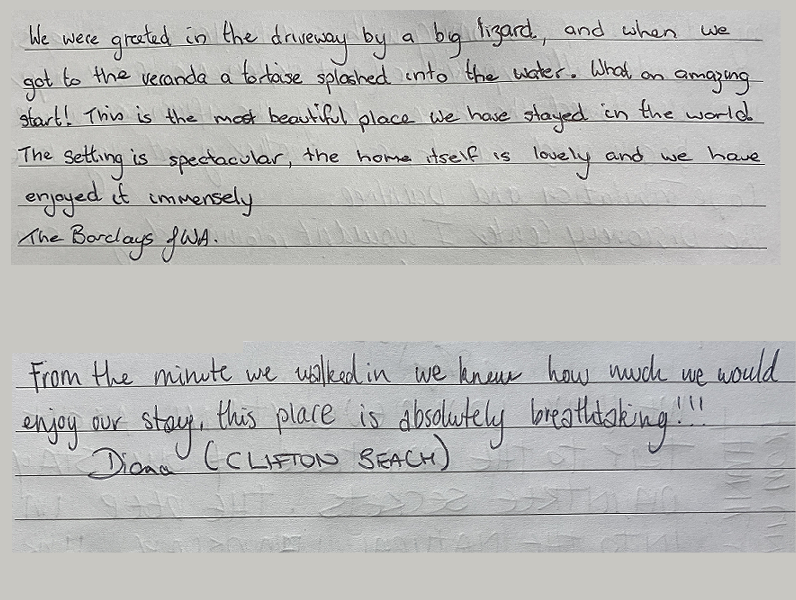 We were greeted in the driveway by a big lizard, and when we
got to the veranda a tortoise splashed into the water. What an amazing
start! This is the most beautiful place we have stayed in the world.
The setting is spectacular, the home itself is lovely and we have
enjoyed it immensely
The Barclays of WA.
From the minute we walked in we knew how much we would
enjoy our stay, this place is absolutely breathtaking!!!
Diana (CLIFTON BEACH)